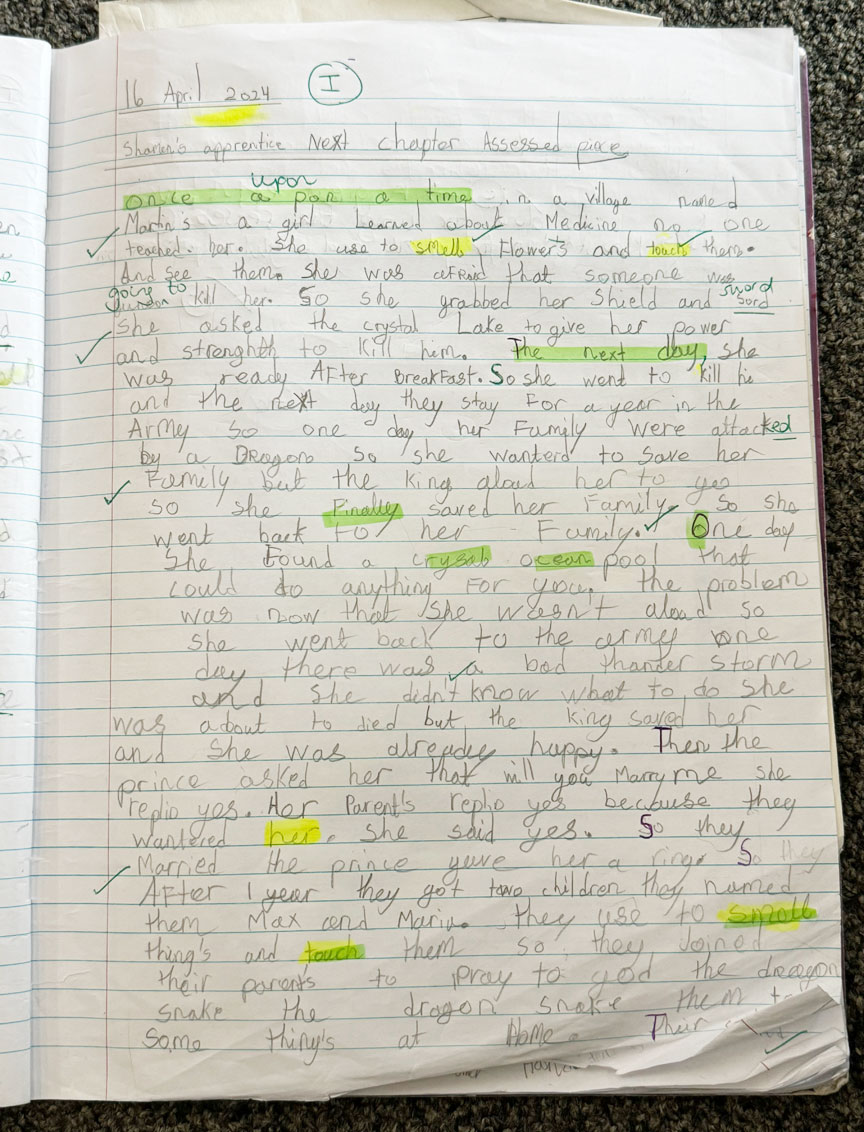 16 April 2024 I
Sharien's apprentice Next chapter Assessed piece
upon
once a pon a time in a village named
Martin's a girl Learned about Medicine no one
teached her. She use to smell Flower's and touch them.
And see them. she was afraid that someone was
going to kill her. So she grabbed her Shield and sword
sord
She asked the crystal Lake to give her power
and strenghth to kill him. The next day, she
was ready After breakfast. So she went to kill
and the next day they stay For a year in the
Army so one day her Family were attacked
by a Dragon so she wanterd to save her
Family but the king aloud her to
so she Finally saved her Family. So she
went back to her Family. One day
She Found a ocean pool that
could do anything For you, the problem
was now that she wasn't aload so
she went back to the army one
day there was a bad thander storm
and She didn't know what to do she
was about to died but the king saved her
and she was already happy. Then the
prince asked her that will you Marry me she
replio yes. Her Parent's replio yes because they
wantered her. She said yes. So they
Married the prince gave her a ring. So they
After 1 year they got two children they named
them Max and Maria. they use to smell
thing's and touch them so they Joined
their parent's to pray to god the dreagon
snake the dragon snake them
Some thing's at Home. Their